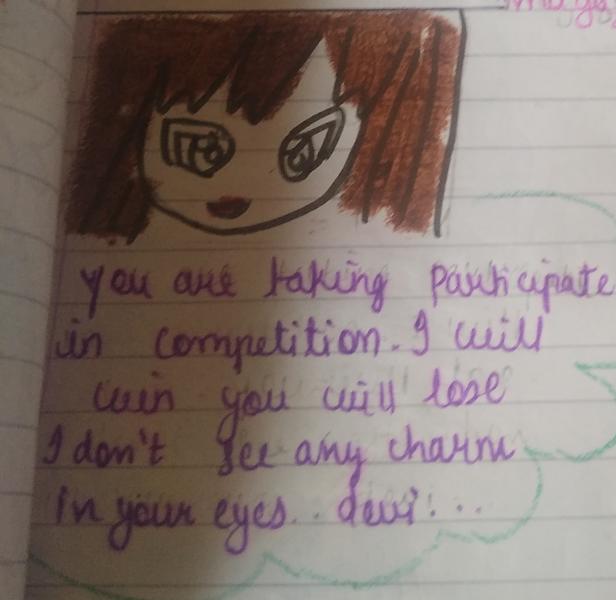 you are taking participate
in competition. I will
win you will lose
I don't see any charm
in your eyes.. devi!...